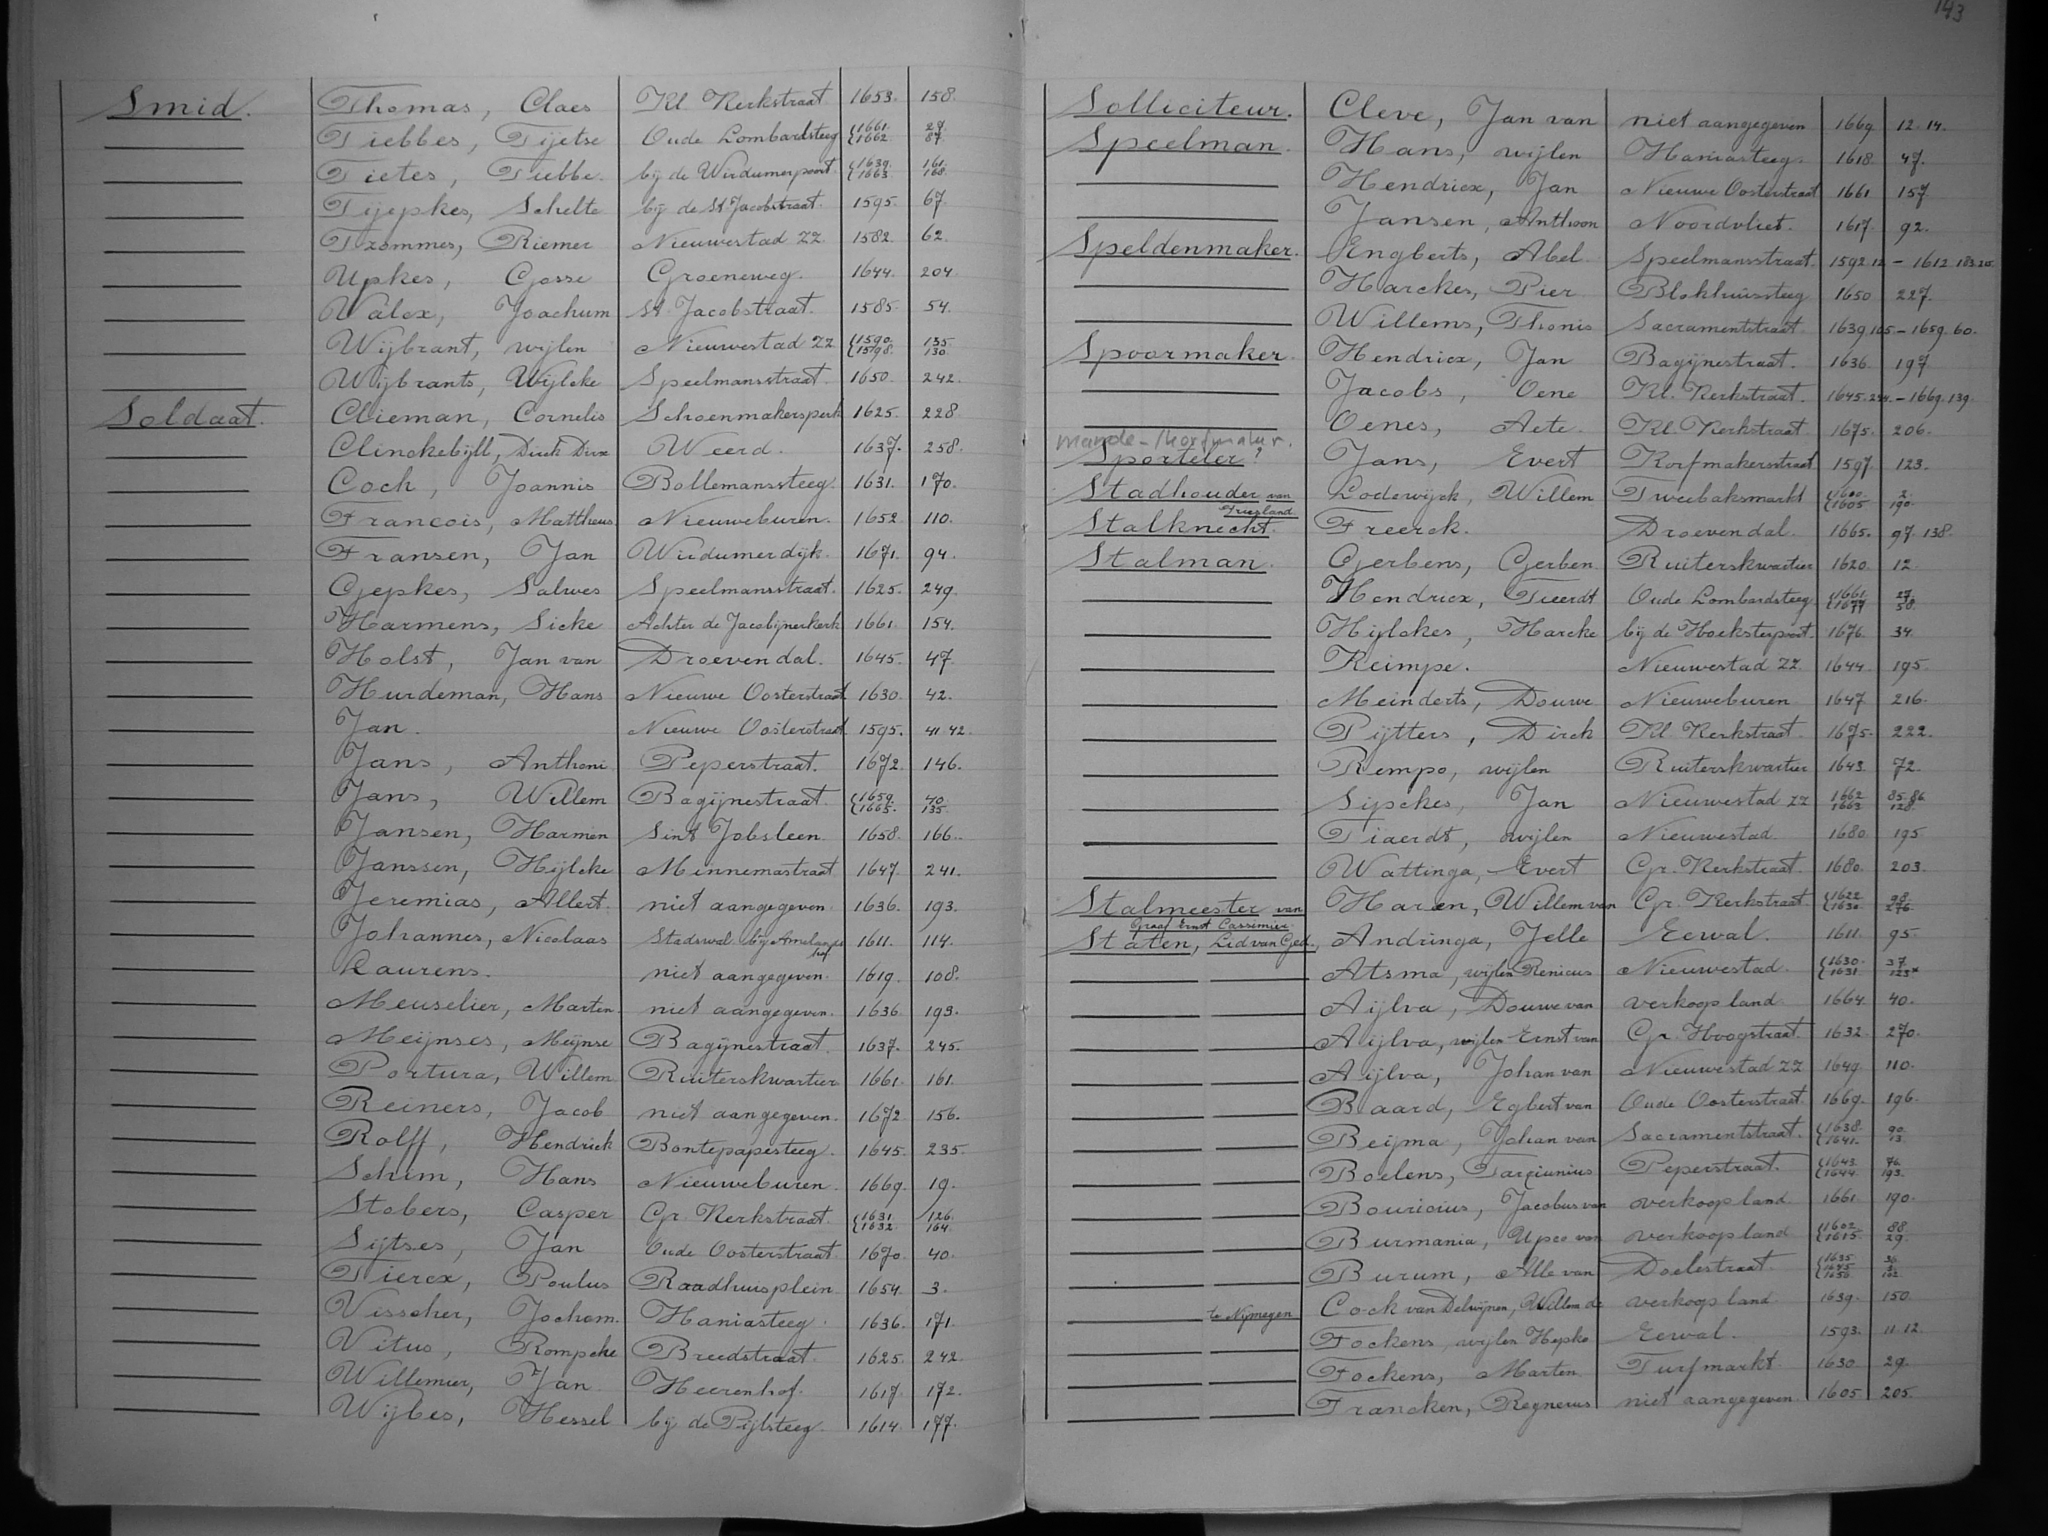 143
Smid. Thomas, Claes Kl. Kerkstraat. 1653. 158.
Tiebbes, Tijetse Oude Lombardsteeg 1661. 1662. 27. 87.
Tietes, Tiebbe. bij de Wirdumerpoort. 1639. 1663. 161. 168.
Tijepkes, Schelte bij de St. Jacobstraat. 1595. 67.
Tzommes, Riemer Nieuwestad ZZ. 1582. 62.
Upkes, Gosse Groeneweg. 1644. 204.
Walox, Joachum St. Jacobstraat. 1585. 54.
Wijbrant, wijlen Nieuwestad ZZ 1590. 1598. 135. 130.
Wijbrants, Wijleke Speelmansstraat. 1650. 242.
Soldaat. Clieman, Cornelis Schoenmakersperk 1625. 228.
Clinckebijll, Dirck Dirx Weerd. 1637. 258.
Coch, Joannis Bollemanssteeg. 1631. 170.
Francois, Mattheus. Nieuweburen. 1652 110.
Fransen, Jan Wirdumerdijk. 1671. 94.
Gjepkes, Salwes Speelmansstraat. 1625. 249.
Harmens, Sicke Achter de Jacobijnerkerk 1661. 154.
Holst, Jan van Droevendal. 1645. 47.
Hurdeman, Hans Nieuwe Oosterstraat. 1630. 42.
Jan. Nieuwe Oosterstraat. 1595. 41 42.
Jans, Anthoni Peperstraat. 1672. 146.
Jans, Willem Bagijnestraat. 1659. 1665. 40. 135.
Jansen, Harmen Sint Jobsleen. 1658. 166.
Janssen, Hijlcke Minnemastraat 1647. 241.
Jeremias, Allert. niet aangegeven. 1636. 193.
Johannes, Nicolaas Stadswal bij Amelandshof 1611. 114.
Laurens. niet aangegeven. 1619. 108.
Meuselier, Marten. niet aangegeven. 1636. 193.
Meijnses, Meijnse Bagijnestraat. 1637. 245.
Portura, Willem Ruiterskwartier 1661. 161.
Reiners, Jacob niet aangegeven. 1672 156.
Rolff, Hendrick Bontepapesteeg. 1645. 235.
Schim, Hans Nieuweburen. 1669. 19.
Stobers, Casper Gr. Kerkstraat. 1631. 1632. 126. 164.
Sijtses, Jan Oude Oosterstraat. 1670. 40.
Tierex, Poulus Raadhuisplein. 1654. 3.
Visscher, Jochom. Haniasteeg. 1636. 171.
Vitus, Rompcke Breedstraat. 1625. 242.
Willemier, Jan Heerenhof. 1617. 172.
Wijbes, Hessel bij de Pijlsteeg. 1614. 177.
Solliciteur. Cleve, Jan van niet aangegeven 1669. 12. 14.
Speelman. Hans, wijlen Haniasteeg. 1618. 47.
Hendricx, Jan Nieuwe Oosterstraat 1661 157
Jansen, Anthoon Noordvliet. 1617. 92.
Speldenmaker. Engberts, Abel. Speelmansstraat. 1592. 12 - 1612. 183.20.
Harckes, Pier Blokhuissteeg 1650 227.
Willems, Thonis Sacramentstraat. 1639. 105. - 1659. 60.
Spoormaker. Hendricx, Jan Bagijnestraat. 1636. 197
Jacobs, Oene Kl. Kerkstraat. 1645. 244. - 1669. 139.
Oenes, Aete. Kl. Kerkstraat 1675. 206.
mande-/korfmaker.
Sporteler? Jans, Evert Korfmakersstraat. 1597. 123.
Stadhouder van Friesland. Lodewijck, Willem Tweebaksmarkt 1600. 1605 2. 190.
Stalknecht. Freerck. Droevendal. 1665. 97. 138.
Stalman. Gjerbens, Gjerben Ruiterskwartier 1620. 12.
Hendricx, Tieerdt Oude Lombardsteeg. 1661. 1677 27. 58.
Hijlckes, Harcke bij de Hoeksterpoort. 1676. 34.
Reimpe. Nieuwestad ZZ. 1644. 195.
Meinderts, Douwe Nieuweburen 1647 216.
Pijtters, Dirck Kl. Kerkstraat. 1675. 222.
Rempo, wijlen Ruiterskwartier 1643. 72.
Sijpckes, Jan Nieuwestad ZZ 1662 1663 85. 86. 128.
Tiaerdt, wijlen Nieuwestad. 1680. 195
Wattinga, Evert Gr. Kerkstraat. 1680. 203.
Stalmeester van Graaf Ernst Cassimier. Haren, Willem van Gr. Kerkstraat. 1622. 1630. 98. 276.
Staten, Lid van Ged. Andringa, Jelle Eewal. 1611. 95.
Atsma, wijlen Renicus Nieuwestad. 1630. 1631. 37. 123*
Aijlva, Douwe van verkoop land. 1664. 40.
Aijlva, wijlen Ernst van Gr. Hoogstraat. 1632. 270.
Aijlva, Johan van Nieuwestad ZZ 1649. 110.
Baard, Egbert van Oude Oosterstraat. 1669. 196.
Beijma, Johan van Sacramentstraat. 1638. 1641. 90. 13.
Boelens, Tarquinius Peperstraat. 1643. 1644. 76. 193.
Bouricius, Jacobus van verkoop land. 1661. 190.
Burmania, Upco van verkoop land 1602. 1615. 88. 29.
Burum, Alle van Doelestraat. 1635. 1645.
te Nijmegen Cock van Delwijnen, Willem de verkoop land 1639. 150.
Fockens, wijlen Hepke Eewal. 1593. 11. 12.
Fockens, Marten Turfmarkt. 1630. 29.
Francken, Regnerus niet aangegeven. 1605. 205.